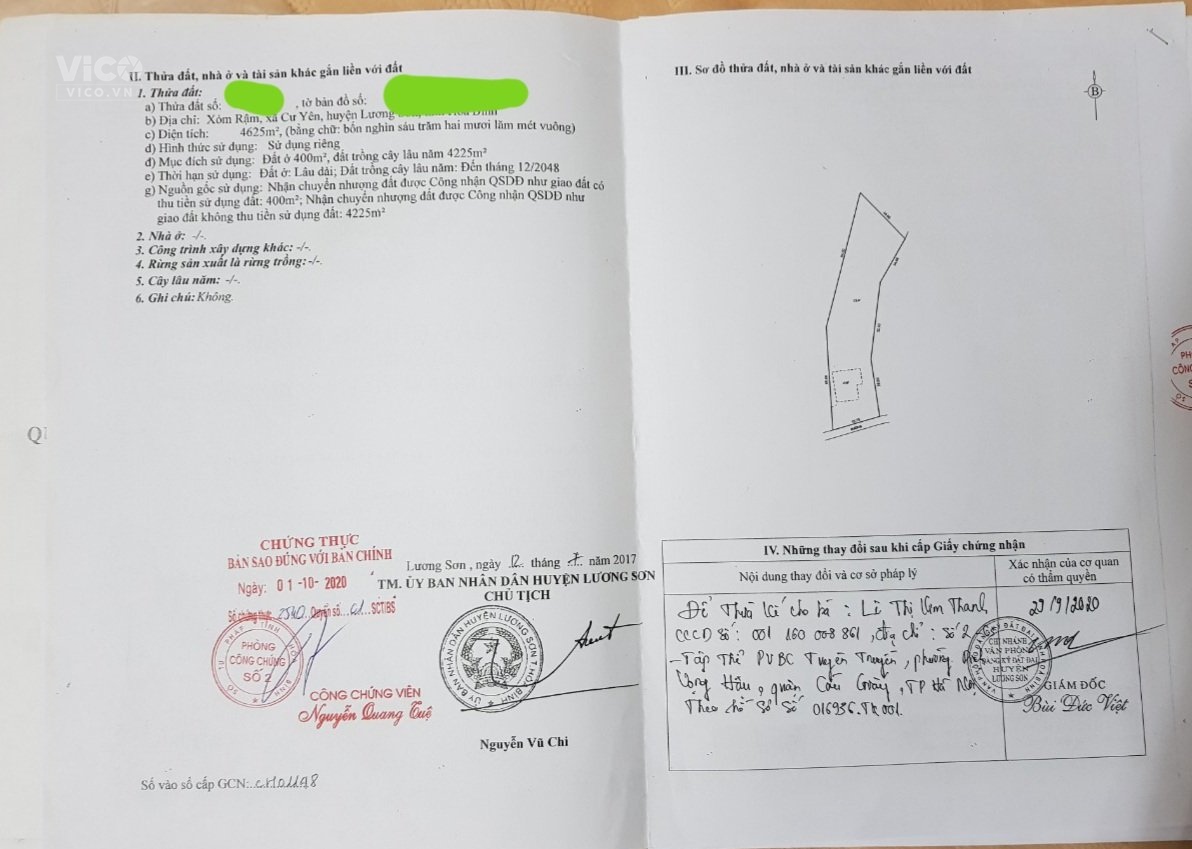 VICO
VICO.VN
II. Thửa đất, nhà ở và tài sản khác gắn liền với đất
1. Thửa đất:
a) Thửa đất số: , tờ bản đồ số:
b) Địa chỉ: Xóm Rậm, xã Cư Yên, huyện Lương
c) Diện tích: 4625m², (bằng chữ: bốn nghìn sáu trăm hai mươi lăm mét vuông)
d) Hình thức sử dụng: Sử dụng riêng
đ) Mục đích sử dụng: Đất ở 400m², đất trồng cây lâu năm 4225m²
e) Thời hạn sử dụng: Đất ở: Lâu dài; Đất trồng cây lâu năm: Đến tháng 12/2048
g) Nguồn gốc sử dụng: Nhận chuyển nhượng đất được Công nhận QSDĐ như giao đất có
thu tiền sử dụng đất: 400m²; Nhận chuyển nhượng đất được Công nhận QSDĐ như
giao đất không thu tiền sử dụng đất: 4225m²
2. Nhà ở: -/-.
3. Công trình xây dựng khác: -/-.
4. Rừng sản xuất là rừng trồng: -/-.
5. Cây lâu năm: -/-.
6. Ghi chú: Không.
CHỨNG THỰC
BẢN SAO ĐÚNG VỚI BẢN CHÍNH
Ngày: 01-10-2020
Số chứng thực 2540 Quyển số 61 SCT/BS
PHÒNG
CÔNG CHỨNG
SỐ 2
CÔNG CHỨNG VIÊN
Nguyễn Quang Tuệ
Lương Sơn , ngày 12 tháng 7 năm 2017
TM. ỦY BAN NHÂN DÂN HUYỆN LƯƠNG SƠN
CHỦ TỊCH
ỦY BAN NHÂN DÂN HUYỆN LƯƠNG SƠN T.HÒA BÌNH
Nguyễn Vũ Chi
Số vào sổ cấp GCN:
III. Sơ đồ thửa đất, nhà ở và tài sản khác gắn liền với đất
B
IV. Những thay đổi sau khi cấp Giấy chứng nhận
Nội dung thay đổi và cơ sở pháp lý
Xác nhận của cơ quan
có thẩm quyền
Để Thừa kế cho bà : Lê Thị Kim Thanh,
CCCD số: 001 160 008 861, địa chỉ : số 2
- Tập Thể PVBC Tuyên Truyền, phường Dịch
Vọng Hậu, quận Cầu Giấy, TP Hà Nội
Theo hồ sơ số 016936.TK.001.
29/9/2020
CHI NHÁNH
VĂN PHÒNG
ĐĂNG KÝ ĐẤT ĐAI
HUYỆN
LƯƠNG SƠN
GIÁM ĐỐC
Bùi Đức Việt